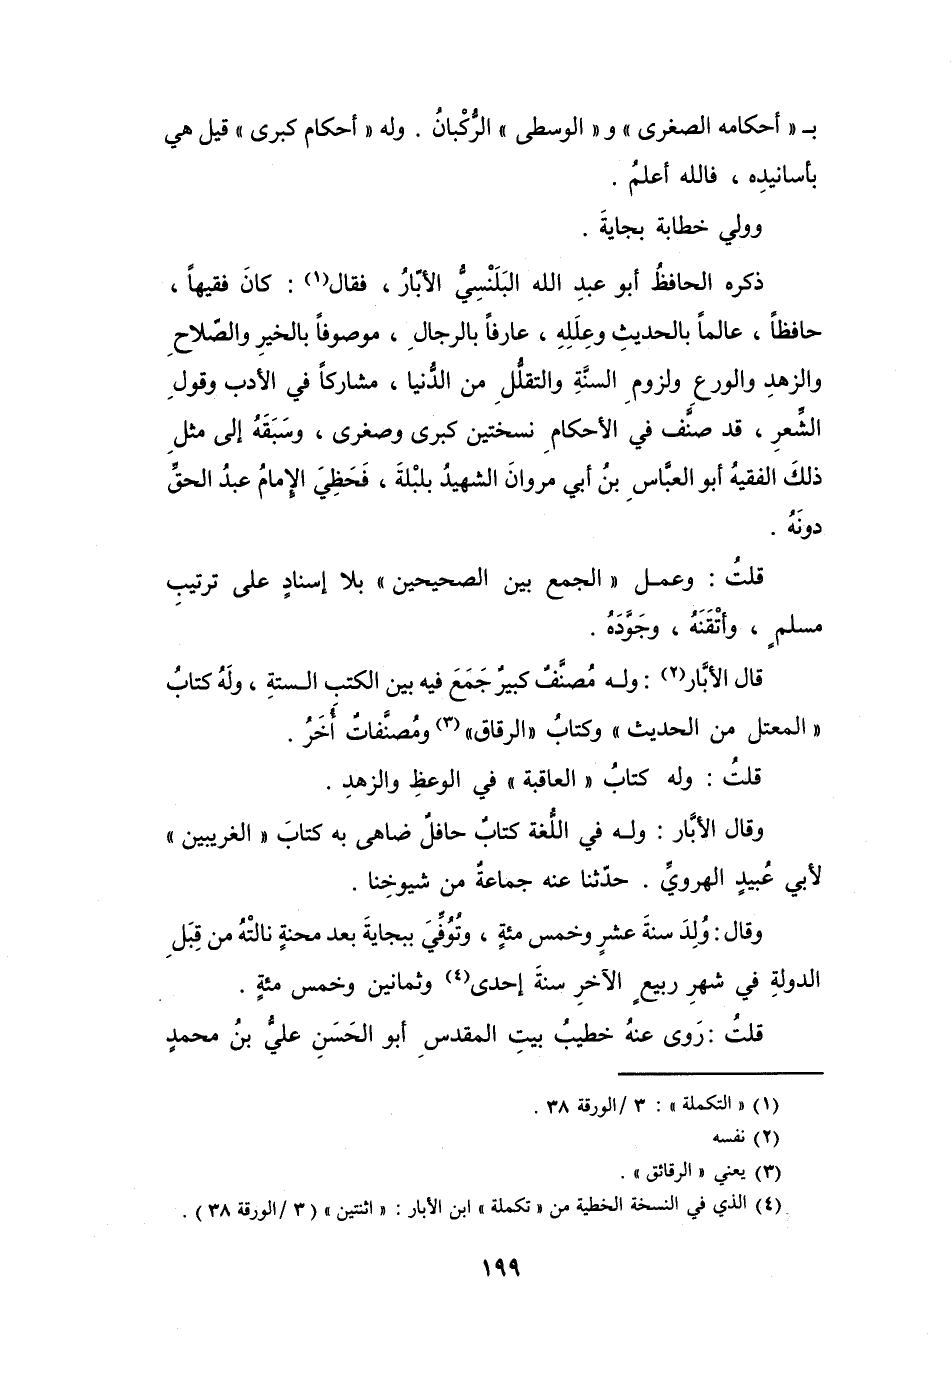 بـ « أحكامه الصغرى » و « الوسطى » الرُّكْبانُ . وله « أحكام كبرى » قيل هي
بأسانيدِه ، فالله أعلمُ .
وولي خطابة بجايةَ .
ذكره الحافظُ أبو عبدِ الله البَلَنْسِيُّ الأبّارُ ، فقال(١) : كانَ فقيهاً ،
حافظاً ، عالماً بالحديثِ وعِلَلِهِ ، عارفاً بالرجالِ ، موصوفاً بالخيرِ والصّلاحِ
والزهدِ والورعِ ولزومِ السنَّةِ والتقلُّلِ من الدُّنيا ، مشاركاً في الأدب وقولِ
الشِّعرِ ، قد صنَّف في الأحكامِ نسختين كبرى وصغرى ، وسَبَقَهُ إلى مثلِ
ذلكَ الفقيهُ أبو العبَّاسِ بنُ أبي مروانَ الشهيدُ بلبْلةَ ، فَحَظِيَ الإِمامُ عبدُ الحقِّ
دونَهُ .
قلتُ : وعمـل « الجمع بين الصحيحين » بلا إسنادٍ على ترتيبِ
مسلمٍ ، وأتْقَنَهُ ، وجَوَّدَهُ .
قال الأبَّار(٢) : ولـه مُصنَّفٌ كبيرٌ جَمَعَ فيه بين الكتبِ الـستةِ ، ولَهُ كتابُ
« المعتل من الحديث » وكتابُ «الرقاق»(٣) ومُصنَّفاتٌ أُخَرُ .
قلتُ : وله كتابُ « العاقبة » في الوعظِ والزهدِ .
وقال الأبَّار : ولـه في اللُّغة كتابٌ حافلٌ ضاهى به كتابَ « الغريبين »
لأبي عُبيدٍ الهرويِّ . حدّثنا عنه جماعةٌ من شيوخِنا .
وقال : وُلِدَ سنةَ عشرٍ وخمس مئةٍ ، وتُوُفِّيَ ببجايةَ بعد محنةٍ نالتْهُ من قِبَلِ
الدولةِ في شهرِ ربيعٍ الآخرِ سنةَ إحدى(٤) وثمانين وخمس مئةٍ .
قلتُ : رَوى عنهُ خطيبُ بيتِ المقدسِ أبو الحَسَنِ عليُّ بنُ محمدٍ
(١) « التكملة » : ٣ / الورقة ٣٨ .
(٢) نفسه
(٣) يعني « الرقائق » .
(٤) الذي في النسخة الخطية من « تكملة » ابن الأبار : « اثنتين » ( ٣ / الورقة ٣٨ ) .
١٩٩